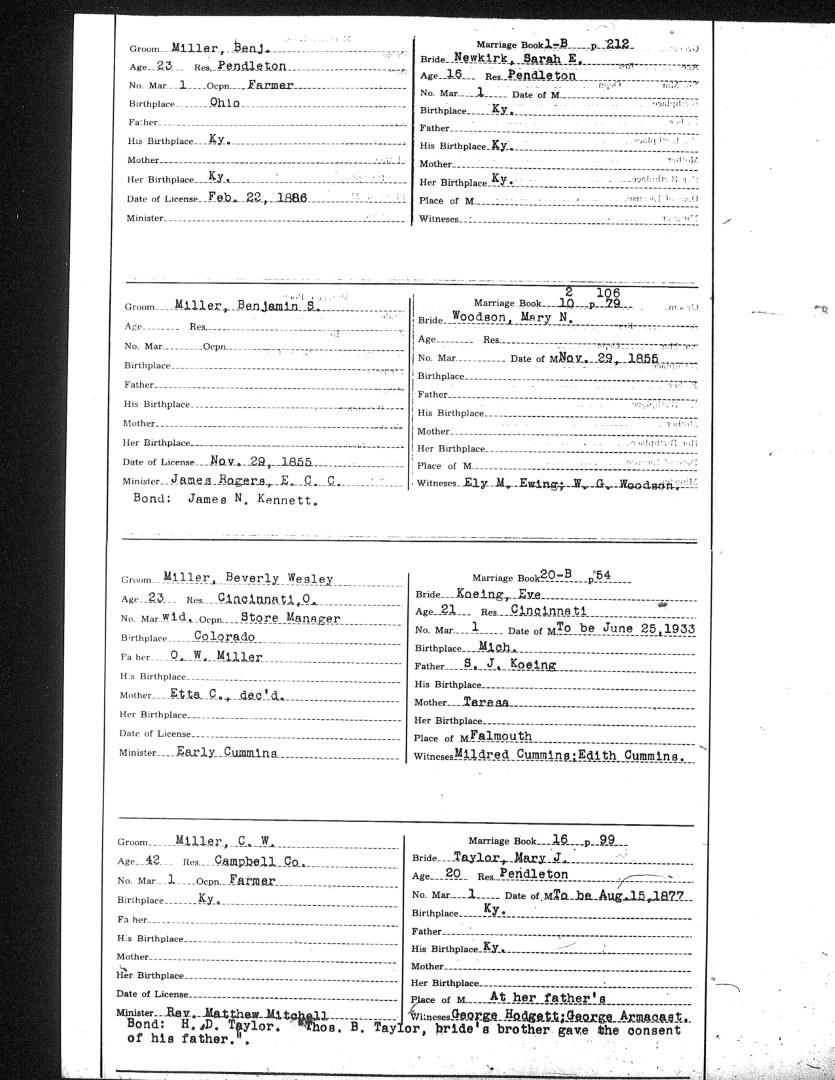 Groom Miller, Benj.
Age 23 Res. Pendleton
No. Mar 1 Ocpn. Farmer
Birthplace Ohio
Father
His Birthplace Ky.
Mother
Her Birthplace Ky.
Date of License Feb. 22, 1886
Minister
Marriage Book 1-B p. 212
Bride Newkirk, Sarah E.
Age 16 Res. Pendleton
No. Mar. 1 Date of M.
Birthplace Ky.
Father
His Birthplace Ky.
Mother
Her Birthplace Ky.
Place of M.
Witneses
Groom Miller, Benjamin S.
Age Res.
No. Mar Ocpn.
Birthplace
Father
His Birthplace
Mother
Her Birthplace
Date of License Nov. 29, 1855
Minister James Rogers, E. C. C.
Bond: James N. Kennett.
2 106
Marriage Book 10 p. 79
Bride Woodson, Mary N.
Age Res.
No. Mar. Date of M. Nov. 29, 1855
Birthplace
Father
His Birthplace
Mother
Her Birthplace
Place of M.
Witneses Ely M. Ewing; W. G. Woodson.
Groom Miller, Beverly Wesley
Age 23 Res. Cincinnati, O.
No. Mar wid. Ocpn. Store Manager
Birthplace Colorado
Fa her O. W. Miller
His Birthplace
Mother Etta C., dec'd.
Her Birthplace
Date of License
Minister Early Cummins
Marriage Book 20-B p 54
Bride Koeing, Eve
Age 21 Res. Cincinnati
No. Mar. 1 Date of M. To be June 25, 1933
Birthplace Mich.
Father S. J. Koeing
His Birthplace
Mother Teresa
Her Birthplace
Place of M. Falmouth
Witneses Mildred Cummins; Edith Cummins.
Groom Miller, C. W.
Age 42 Res. Campbell Co.
No. Mar. 1 Ocpn. Farmer
Birthplace Ky.
Fa her
His Birthplace
Mother
Her Birthplace
Date of License
Minister Rev. Matthew Mitchell
Marriage Book 16 p. 99
Bride Taylor, Mary J.
Age 20 Res. Pendleton
No. Mar 1 Date of M. To be Aug. 15, 1877
Birthplace Ky.
Father
His Birthplace Ky.
Mother
Her Birthplace
Place of M. At her father's
Witneses George Hodgett; George Armacast.
Bond: H. D. Taylor. "Thos. B. Taylor, bride's brother gave the consent
of his father.".